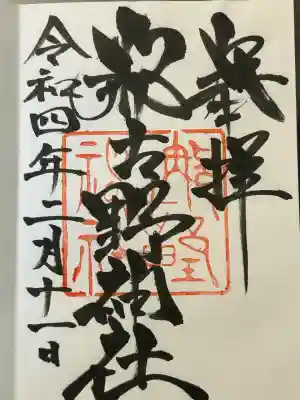 奉拝
古野神社
令和四年二月十一日